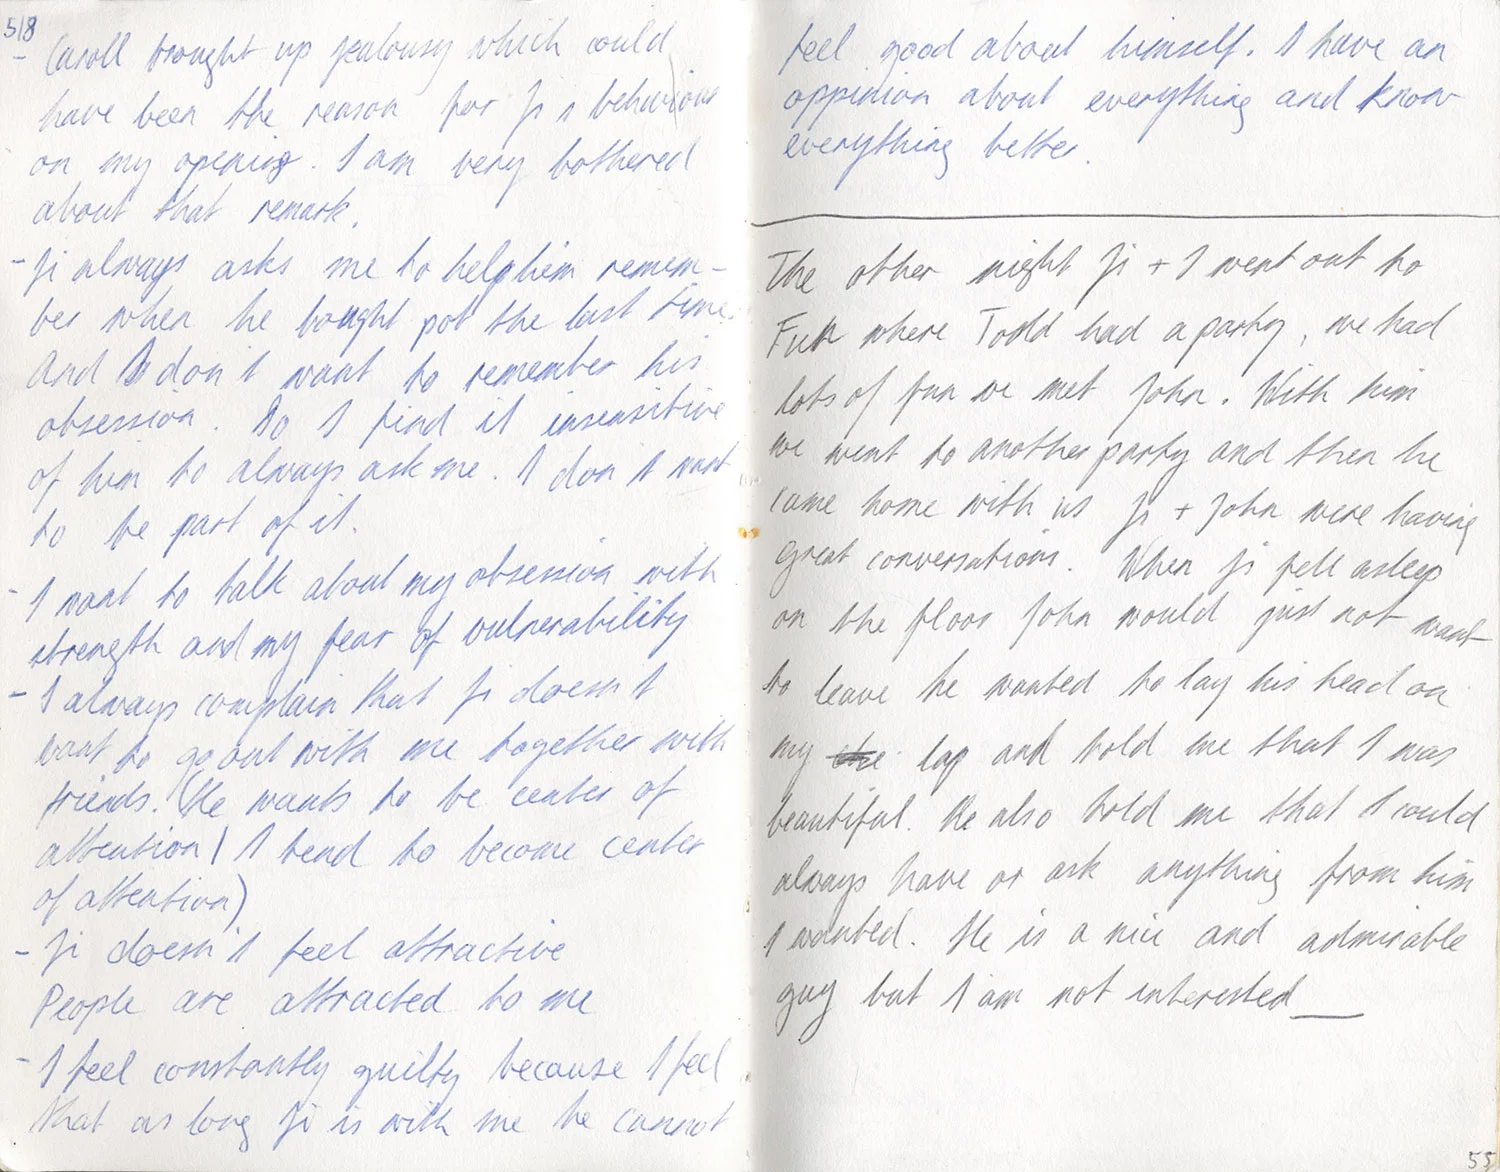 518
- Caroll brought up jealousy which could
have been the reason for Ji's behaviour
on my opening. I am very bothered
about that remark.
- Ji always asks me to help him remem-
ber when he bought pot the last time.
And I don't want to remember his
obsession. So I find it insensitive
of him to always ask me. I don't want
to be part of it.
- I want to talk about my obsession with
strength and my fear of vulnerability
- I always complain that Ji doesn't
want to go out with me together with
friends. (He wants to be center of
attention / I tend to become center
of attention)
- Ji doesn't feel attractive
People are attracted to me
- I feel constantly guilty because I feel
that as long Ji is with me he cannot
feel good about himself. I have an
oppinion about everything and know
everything better.
The other night Ji + I went out to
Fun where Todd had a party, we had
lots of fun we met John. With him
we went to another party and then he
came home with us Ji + John were having
great conversations. When Ji fell asleep
on the floor John would just not want
to leave he wanted to lay his head on
my the lap and told me that I was
beautiful. He also told me that I could
always have or ask anything from him
I wanted. He is a nice and admirable
guy but I am not interested__
55